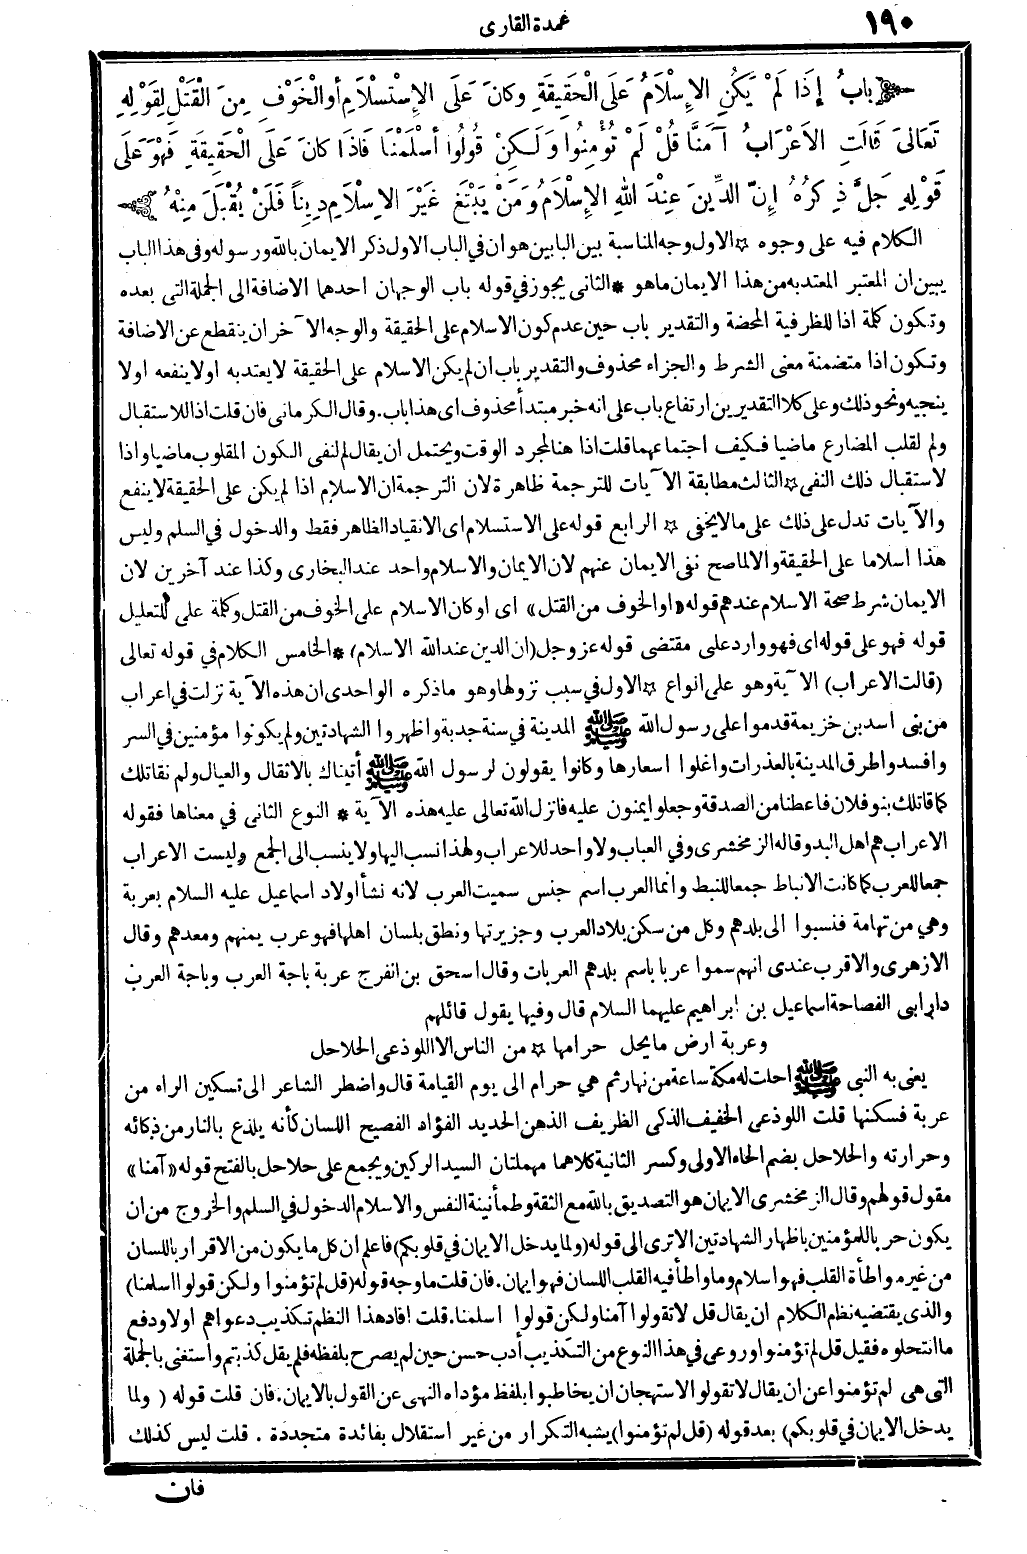 ١٩٠
عمدة القارى
باب إِذَا لَمْ يَكُنِ الإِسْلاَمُ عَلَى الْحَقِيقَةِ وكانَ عَلَى الإِسْتسْلاَمِ أوالْخَوْفِ مِنَ الْقَتْلِ لِقَوْلِهِ
تَعَالىَ قَالَتِ الأَعْرَابُ آمَنَّا قُلْ لَمْ تُؤْمِنُوا وَلَكِنْ قُولُوا أَسْلَمْنَا فَإذَا كانَ عَلَى الْحَقِيقَةِ فَهْوَ عَلَى
قَوْلِهِ جَلَّ ذِكرُهُ إِنَّ الدِّينَ عِنْدَ اللهِ الإِسْلاَمُ وَمَنْ يَبْتَغِ غَيْرَ الإِسْلاَمِ دِيناً فَلَنْ يُقْبَلَ مِنْهُ
الكلام فيه على وجوه ☆ الاول وجه المناسبة بين البابين هو ان في الباب الاول ذكر الايمان بالله ورسوله وفى هذا الباب
يبين ان المعتبر المعتد به من هذا الايمان ماهو * الثانى يجوز في قوله باب الوجهان احدهما الاضافة الى الجملة التى بعده
وتكون كلمة اذا للظرفية المحضة والتقدير باب حين عدم كون الاسلام على الحقيقة والوجه الآخر ان ينقطع عن الاضافة
وتكون اذا متضمنة معنى الشرط والجزاء محذوف والتقدير باب ان لم يكن الاسلام على الحقيقة لا يعتد به او لا ينفعه او لا
ينجيه ونحو ذلك وعلى كلا التقديرين ارتفاع باب على انه خبر مبتدأ محذوف اى هذا باب. وقال الكرمانى فان قلت اذا للاستقبال
ولم لقلب المضارع ماضيا فكيف اجتماعهما قلت اذا هنا لمجرد الوقت ويحتمل ان يقال لم لنفى الكون المقلوب ماضيا واذا
لاستقبال ذلك النفى ☆ الثالث مطابقة الآيات للترجمة ظاهرة لان الترجمة ان الاسلام اذا لم يكن على الحقيقة لا ينفع
والآيات تدل على ذلك على مالا يخفى ☆ الرابع قوله على الاستسلام اى الانقياد الظاهر فقط والدخول في السلم وليس
هذا اسلاما على الحقيقة والا لما صح نفى الايمان عنهم لان الايمان والاسلام واحد عند البخارى وكذا عند آخرين لان
الايمان شرط صحة الاسلام عندهم قوله «او الخوف من القتل» اى او كان الاسلام على الخوف من القتل وكلمة على للتعليل
قوله فهو على قوله اى فهو وارد على مقتضى قوله عز وجل (ان الدين عند الله الاسلام) * الخامس الكلام في قوله تعالى
(قالت الاعراب) الآية وهو على انواع ☆ الاول في سبب نزولها وهو ما ذكره الواحدى ان هذه الآية نزلت في اعراب
من بنى اسد بن خزيمة قدموا على رسول الله ﷺ المدينة في سنة جدبة واظهروا الشهادتين ولم يكونوا مؤمنين في السر
وافسدوا طرق المدينة بالعذرات واغلوا اسعارها وكانوا يقولون لرسول الله ﷺ أتيناك بالاثقال والعيال ولم نقاتلك
كما قاتلك بنو فلان فاعطنا من الصدقة وجعلوا يمنون عليه فانزل الله تعالى عليه هذه الآية * النوع الثانى في معناها فقوله
الاعراب هم اهل البدو قاله الزمخشرى وفي العباب ولا واحد للاعراب ولهذا نسب اليها ولا ينسب الى الجمع وليست الاعراب
جمعا للعرب كما كانت الانباط جمعا للنبط وانما العرب اسم جنس سميت العرب لانه نشأ اولاد اسماعيل عليه السلام بعربة
وهي من تهامة فنسبوا الى بلدهم وكل من سكن بلاد العرب وجزيرتها ونطق بلسان اهلها فهو عرب يمنهم ومعدهم وقال
الازهرى والاقرب عندى انهم سموا عربا باسم بلدهم العربات وقال اسحق بن الفرج عربة باجة العرب وباجة العرب
دار ابى الفصاحة اسماعيل بن ابراهيم عليهما السلام قال وفيها يقول قائلهم
وعربة ارض ما يحل حرامها ☆ من الناس الا اللوذعى الحلاحل
يعنى به النبى ﷺ احلت له مكة ساعة من نهار ثم هي حرام الى يوم القيامة قال واضطر الشاعر الى تسكين الراء من
عربة فسكنها قلت اللوذعى الخفيف الذكى الظريف الذهن الحديد الفؤاد الفصيح اللسان كأنه يلذع بالنار من ذكائه
وحرارته والحلاحل بضم الحاء الاولى وكسر الثانية كلاهما مهملتان السيد الركين ويجمع على حلاحل بالفتح قوله «آمنا»
مقول قولهم وقال الزمخشرى الايمان هو التصديق بالله مع الثقة وطمأنينة النفس والاسلام الدخول في السلم والخروج من ان
يكون حربا للمؤمنين باظهار الشهادتين الا ترى الى قوله (ولما يدخل الايمان في قلوبكم) فاعلم ان كل ما يكون من الاقرار باللسان
من غير مواطأة القلب فهو اسلام وما واطأ فيه القلب اللسان فهو ايمان. فان قلت ما وجه قوله (قل لم تؤمنوا ولكن قولوا اسلمنا)
والذى يقتضيه نظم الكلام ان يقال قل لا تقولوا آمنا ولكن قولوا اسلمنا. قلت افاد هذا النظم تكذيب دعواهم اولا ودفع
ما انتحلوه فقيل قل لم تؤمنوا وروعى في هذا النوع من التكذيب أدب حسن حين لم يصرح بلفظه فلم يقل كذبتم واستغنى بالجملة
التى هى لم تؤمنوا عن ان يقال لا تقولوا لاستهجان ان يخاطبوا بلفظ مؤداه النهى عن القول بالايمان. فان قلت قوله (ولما
يدخل الايمان في قلوبكم) بعد قوله (قل لم تؤمنوا) يشبه التكرار من غير استقلال بفائدة متجددة . قلت ليس كذلك
فان